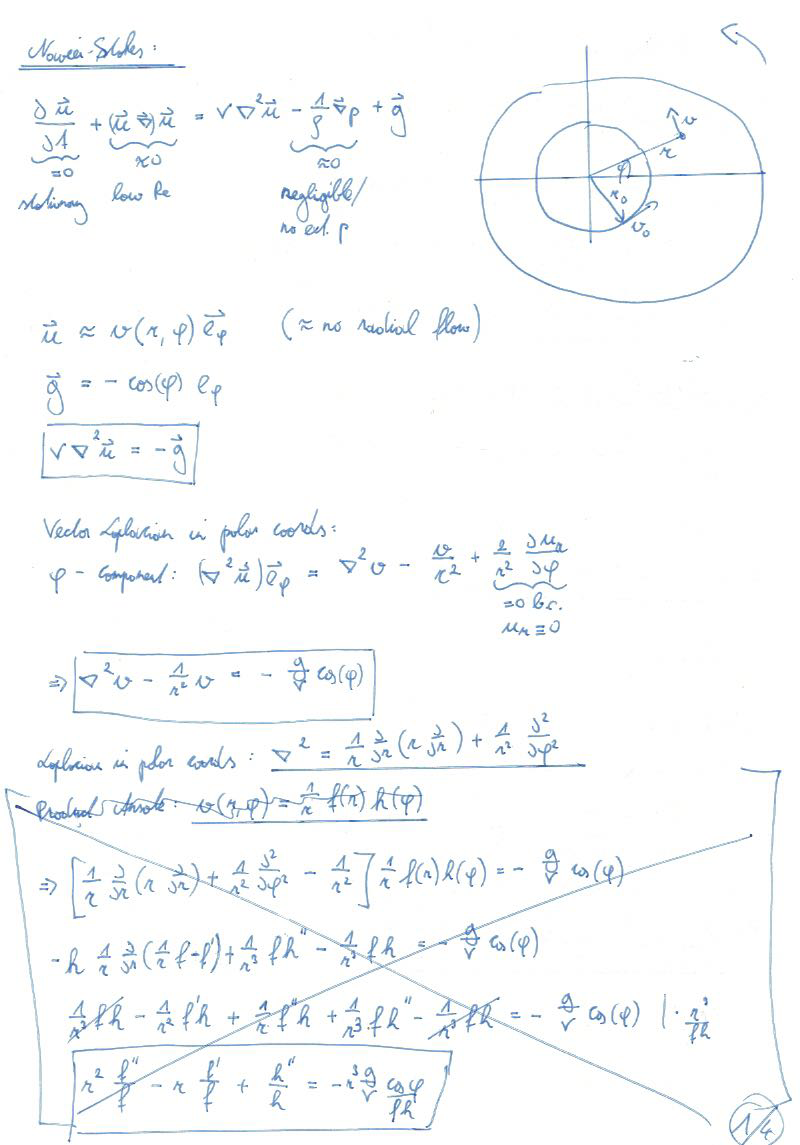 Navier-Stokes:
∂u⃗/∂t + (u⃗ ∇⃗)u⃗ = ν ∇²u⃗ − 1/ρ ∇⃗p + g⃗
=0 ≈0 ≈0
stationary low Re negligible/
no ext. p
v
r
φ
r₀
v₀
u⃗ ≈ v(r, φ) e⃗φ (≈ no radial flow)
g⃗ = − cos(φ) eφ
ν ∇²u⃗ = −g⃗
Vector Laplacian in polar coords:
φ − component: (∇²u⃗)e⃗φ = ∇²v − v/r² + 2/r² ∂uᵣ/∂φ
=0 bc.
uᵣ ≡ 0
⇒ ∇²v − 1/r² v = − g/ν cos(φ)
Laplacian in polar coords: ∇² = 1/r ∂/∂r (r ∂/∂r) + 1/r² ∂²/∂φ²
Product Ansatz: v(r, φ) = 1/r f(r) h(φ)
⇒ [1/r ∂/∂r (r ∂/∂r) + 1/r² ∂²/∂φ² − 1/r²] 1/r f(r) h(φ) = − g/ν cos(φ)
-h 1/r ∂/∂r (1/r f − f') + 1/r³ f h'' − 1/r³ f h = − g/ν cos(φ)
1/r³ f h − 1/r² f' h + 1/r f'' h + 1/r³ f h'' − 1/r³ f h = − g/ν cos(φ) | · r³/fh
r² f''/f − r f'/f + h''/h = −r³ g/ν cosφ/fh
1/4